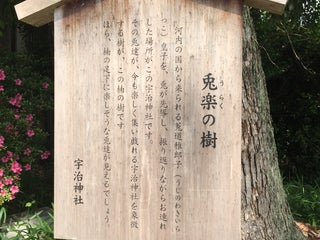 兎楽の樹
河内の国から来られる菟道稚郎子（うじのわきいら
つこ）皇子を、兎が先導し、振り返りながらお連れ
した場所がこの宇治神社です。
その兎達が、今も楽しく集い戯れる宇治神社を象徴
する樹が、この楠の樹です。
ほら、楠の足下に楽しそうな兎達が見えるでしょう
宇治神社